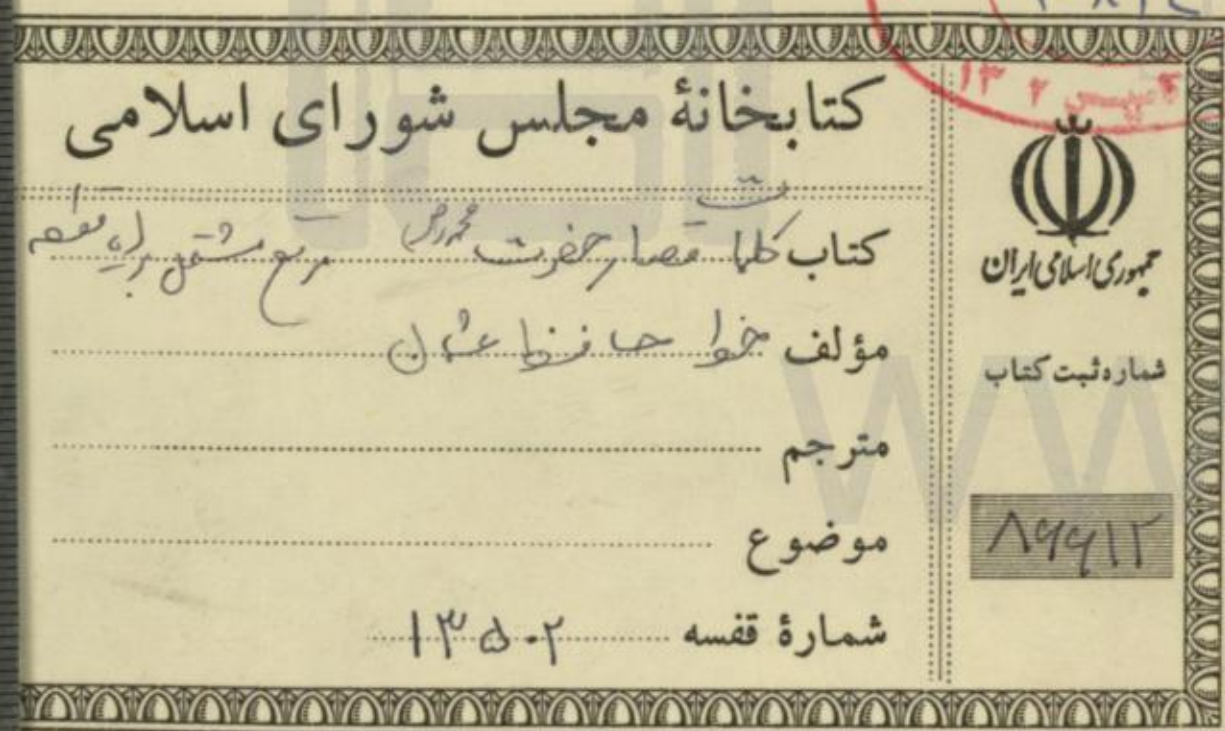 کتابخانهٔ مجلس شورای اسلامی
کتاب کلمات قصار حضرت محمد (ص) مرقع مشتمل بر
مؤلف خط حافظ عثمان
مترجم
موضوع
شمارهٔ قفسه ۱۳۵۰۲
جمهوری اسلامی ایران
شماره ثبت کتاب
۸۶۹۱۲